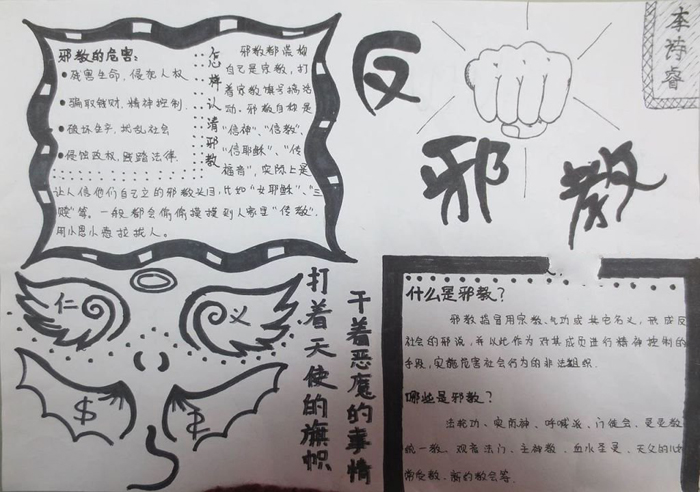 邪教的危害:
残害生命,侵犯人权
骗取钱财,精神控制.
破坏生产,扰乱社会
侵蚀政权,践踏法律.
怎样认清邪教
邪教都谎称
自己是宗教,打
着宗教旗号搞活
动.邪教自称是
"信神"、"信教"、
"信耶稣"、"传
福音",实际上是
让人信他们自己立的邪教头目,比如"女耶稣"、"三
赎"等.一般都会偷偷摸摸到人家里"传教".
用小恩小惠拉拢人.
反
邪
教
李诗睿
仁
义
$
打着天使的旗帜
干着恶魔的事情
什么是邪教?
邪教指冒用宗教、气功或其它名义,形成反
社会的邪说,并以此作为对其成员进行精神控制的
手段,实施危害社会行为的非法组织.
哪些是邪教?
法轮功、实际神、呼喊派、门徒会、灵灵教
统一教、观音法门、主神教、血水圣灵、天父的儿女
常受教、新约教会等.